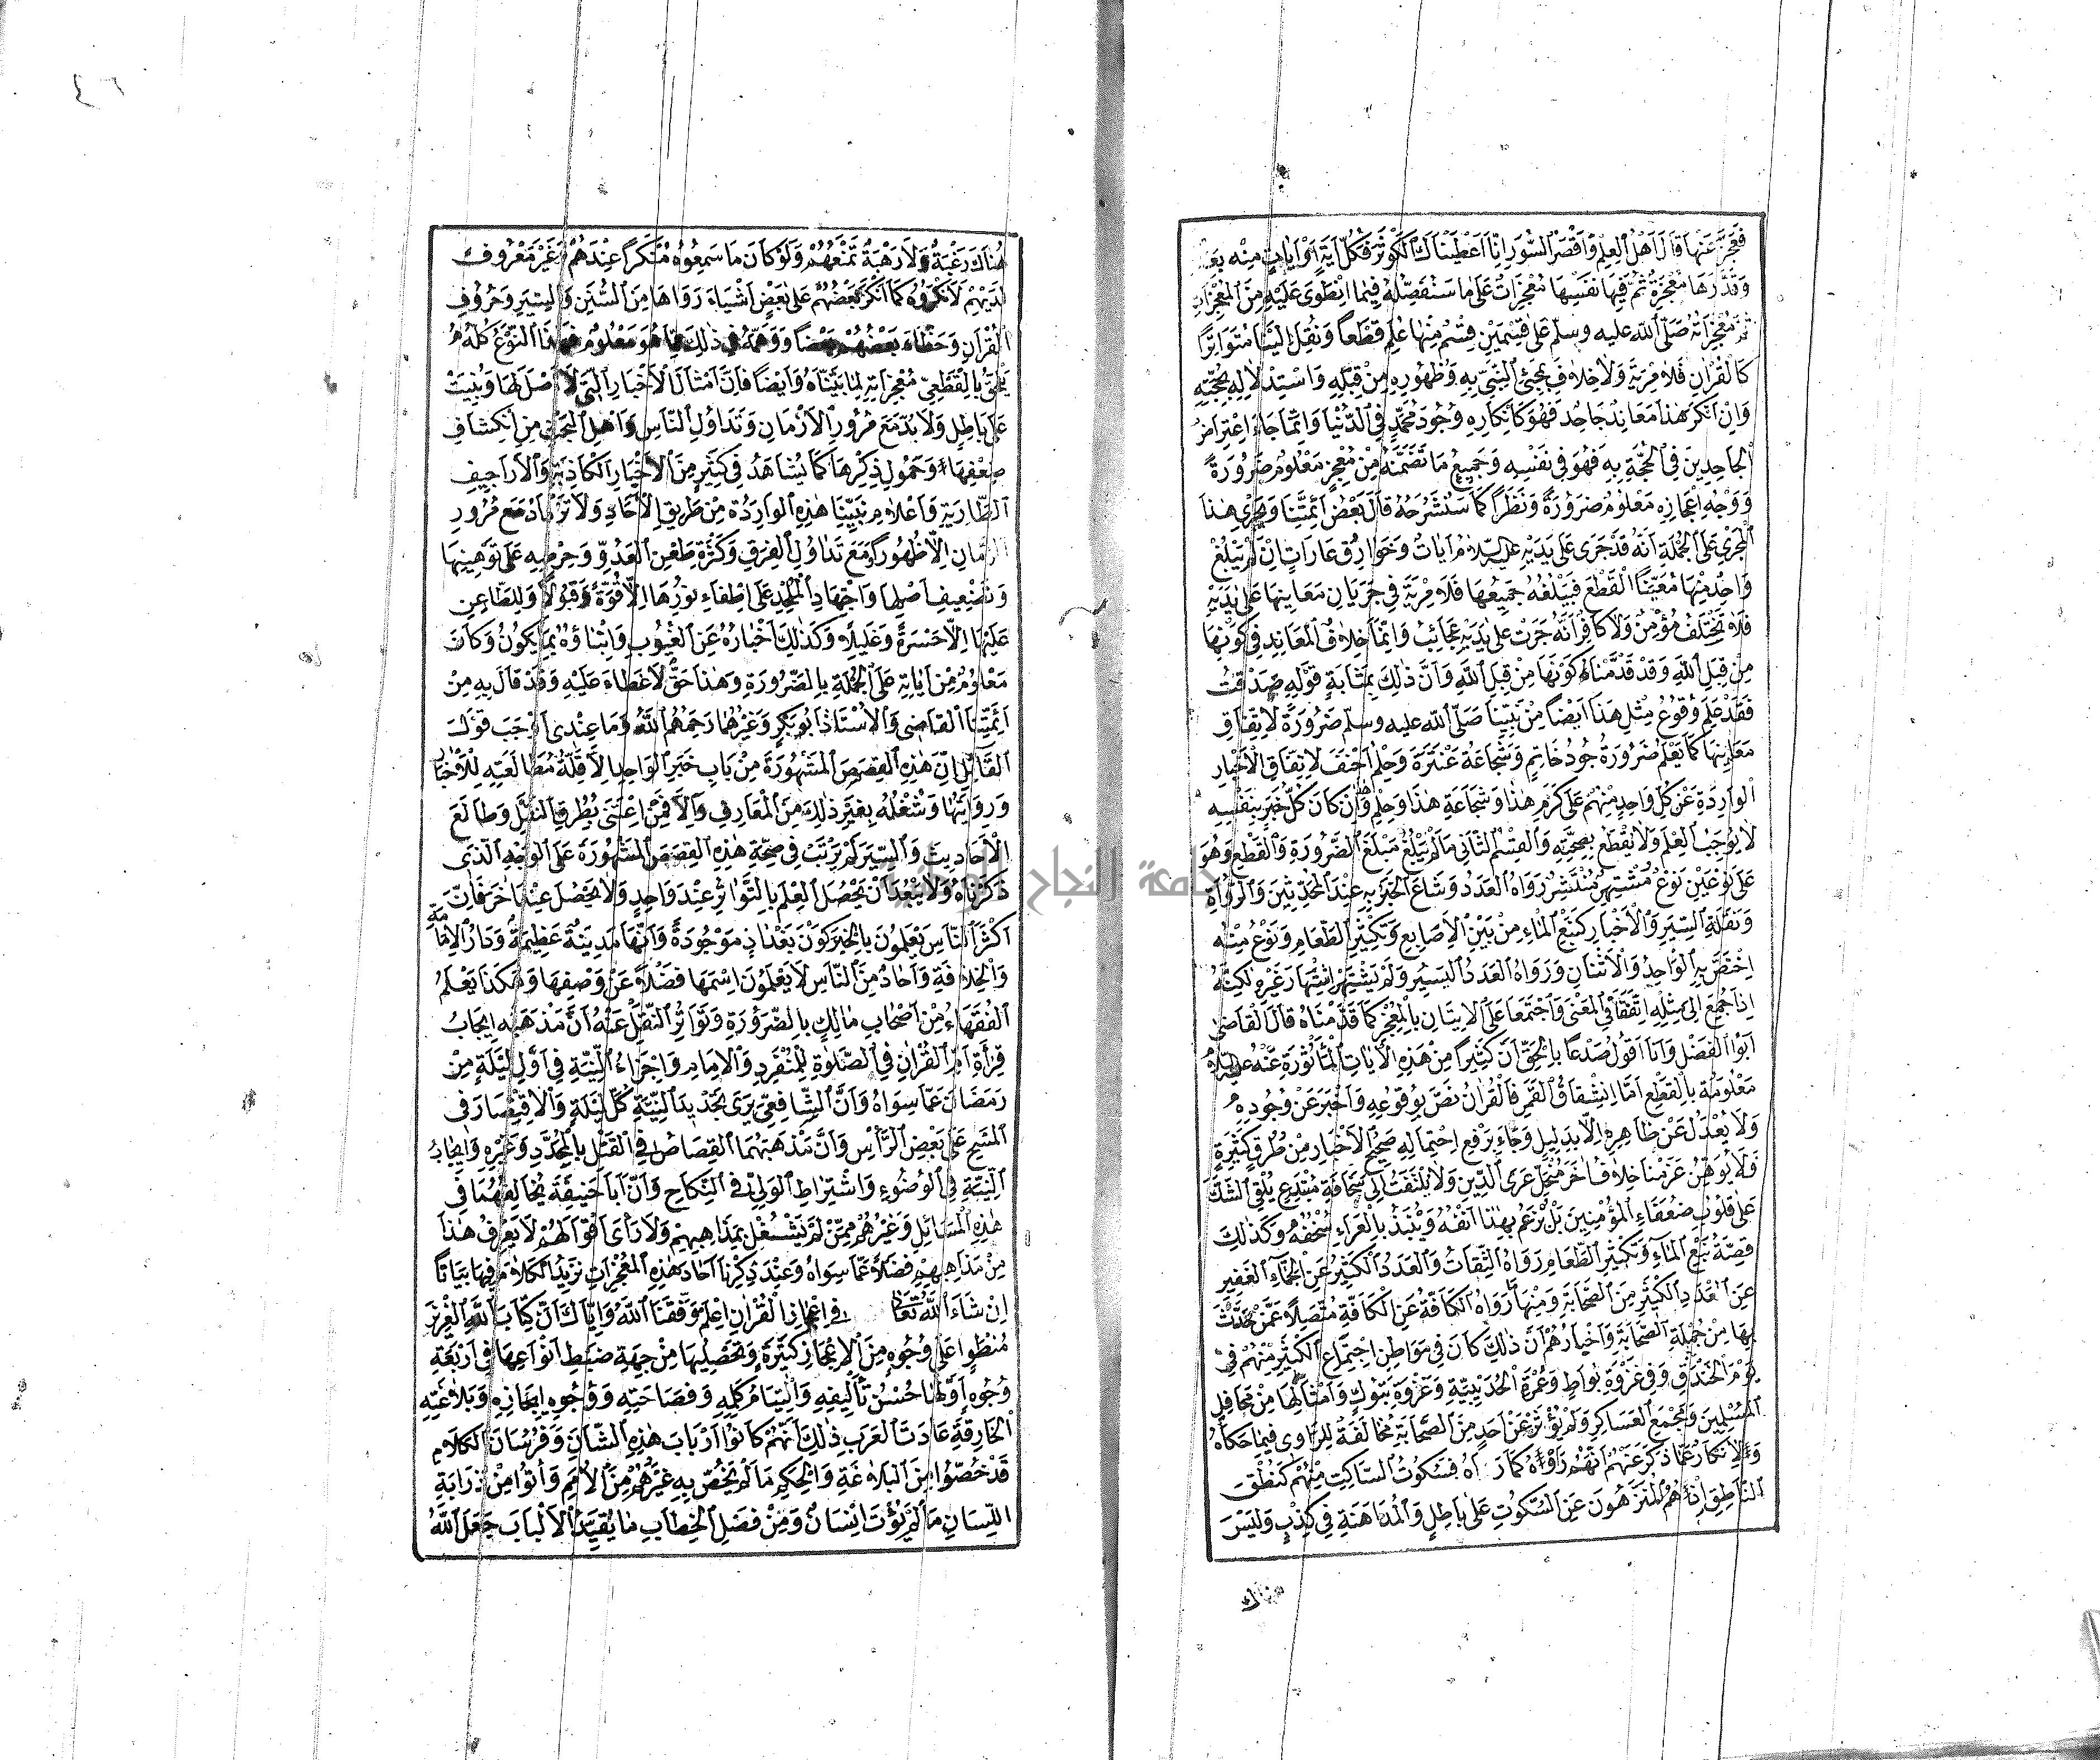 فَعَجَزَ عَنْهَا قَالَ أَهْلُ الْعِلْمِ وَأَقْصَرُ السُّوَرِ إِنَّا أَعْطَيْنَاكَ الْكَوْثَرَ فَكُلُّ آيَةٍ أَوْ آيَاتٍ مِنْهُ بِعَدَ
وَقَدْرِهَا مُعْجِزَةٌ ثُمَّ فِيهَا نَفْسِهَا مُعْجِزَاتٌ عَلَى مَا سَنُفَصِّلُهُ فِيمَا انْطَوَى عَلَيْهِ مِنَ الْمُعْجِزَاتِ
ثُمَّ مُعْجِزَاتُهُ صَلَّى اللّٰه عليه وسلّم عَلَى قِسْمَيْنِ قِسْمٌ مِنْهَا عُلِمَ قَطْعًا وَنُقِلَ إِلَيْنَا مُتَوَاتِرًا
كَالْقُرْآنِ فَلَا مِرْيَةَ وَلَا خِلَافَ بِمَجِيْئِ النَّبِيِّ بِهِ وَظُهُورِهِ مِنْ قِبَلِهِ وَاسْتِدْلَالِهِ بِحُجَّتِهِ
وَإِنْ أَنْكَرَ هٰذَا مُعَانِدٌ جَاحِدٌ فَهُوَ كَإِنْكَارِهِ وُجُودَ مُحَمَّدٍ فِي الدُّنْيَا وَإِنَّمَا جَاءَ اعْتِرَاضُ
الْجَاحِدِينَ فِي الْحُجَّةِ بِهِ فَهُوَ فِي نَفْسِهِ وَجَمِيعُ مَا تَضَمَّنَهُ مِنْ مُعْجِزٍ مَعْلُومٌ ضَرُورَةً
وَوَجْهُ إِعْجَازِهِ مَعْلُومٌ ضَرُورَةً وَنَظَرًا كَمَا سَنَشْرَحُهُ قَالَ بَعْضُ أَئِمَّتِنَا وَيَجْرِي هٰذَا
الْمَجْرَى عَلَى الْجُمْلَةِ أَنَّهُ قَدْ جَرَى عَلَى يَدَيْهِ عليه السّلام آيَاتٌ وَخَوَارِقُ عَادَاتٍ إِنْ لَمْ يَبْلُغْ
وَاحِدٌ مِنْهَا مُعَيَّنًا الْقَطْعَ فَيَبْلُغُهُ جَمِيعُهَا فَلَا مِرْيَةَ فِي جَرَيَانِ مَعَانِيهَا عَلَى يَدَيْهِ
فَلَا يَخْتَلِفُ مُؤْمِنٌ وَلَا كَافِرٌ أَنَّهُ جَرَتْ عَلَى يَدَيْهِ عَجَائِبُ وَإِنَّمَا خِلَافُ الْمُعَانِدِ فِي كَوْنِهَا
مِنْ قِبَلِ اللّٰهِ وَقَدْ قَدَّمْنَا كَوْنَهَا مِنْ قِبَلِ اللّٰهِ وَأَنَّ ذٰلِكَ بِمَثَابَةِ قَوْلِهِ صَدَقْتَ
فَقَدْ عُلِمَ وُقُوعُ مِثْلِ هَذَا أَيْضًا مِنْ نَبِيِّنَا صَلَّى اللّٰه عليه وسلّم ضَرُورَةً لِاتِّفَاقِ
مَعَانِيهَا كَمَا يُعْلَمُ ضَرُورَةً جُودُ حَاتِمٍ وَشَجَاعَةُ عَنْتَرَةَ وَحِلْمُ أَحْنَفَ لِاتِّفَاقِ الْأَخْبَارِ
الْوَارِدَةِ عَنْ كُلِّ وَاحِدٍ مِنْهُمْ عَلَى كَرَمِ هٰذَا وَشَجَاعَةِ هٰذَا وَحِلْمِ هذا وَإِنْ كَانَ كُلُّ خَبَرٍ بِنَفْسِهِ
لَا يُوجِبُ الْعِلْمَ وَلَا يُقْطَعُ بِصِحَّتِهِ وَالْقِسْمُ الثَّانِي مَا لَمْ يَبْلُغْ مَبْلَغَ الضَّرُورَةِ وَالْقَطْعِ وَهُوَ
عَلَى نَوْعَيْنِ نَوْعٌ مُشْتَهِرٌ مُنْتَشِرٌ رَوَاهُ الْعَدَدُ وَشَاعَ الْخَبَرُ بِهِ عِنْدَ الْمُحَدِّثِينَ وَالرُّوَاةِ
وَنَقَلَةِ السِّيَرِ وَالْأَخْبَارِ كَنَبْعِ الْمَاءِ مِنْ بَيْنِ الْأَصَابِعِ وَتَكْثِيرِ الطَّعَامِ وَنَوْعٌ مِنْهُ
اخْتَصَّ بِهِ الْوَاحِدُ وَالْاثْنَانِ وَرَوَاهُ الْعَدَدُ الْيَسِيرُ وَلَمْ يَشْتَهِرْ اشْتِهَارَ غَيْرِهِ لٰكِنَّهُ
إِذَا جُمِعَ إِلَى مِثْلِهِ اتَّفَقَا فِي الْمَعْنَى وَاجْتَمَعَا عَلَى الْإِتْيَانِ بِالْمُعْجِزِ كَمَا قَدَّمْنَاهُ قَالَ الْقَاضِي
أَبُو الْفَضْلِ وَأَنَا أَقُولُ صَدْعًا بِالْحَقِّ أَنَّ كَثِيرًا مِنْ هَذِهِ الْآيَاتِ الْمَأْثُورَةِ عَنْهُ عليه السّلام
مَعْلُومَةٌ بِالْقَطْعِ أَمَّا انْشِقَاقُ الْقَمَرِ فَالْقُرْآنُ نَصَّ بِوُقُوعِهِ وَأَخْبَرَ عَنْ وُجُودِهِ
وَلَا يُعْدَلُ عَنْ ظَاهِرِهِ إِلَّا بِدَلِيلٍ وَجَاءَ بِرَفْعِ احْتِمَالِهِ صَحِيحُ الْأَخْبَارِ مِنْ طُرُقٍ كَثِيرَةٍ
فَلَا يُوهِنُ عَزْمَنَا خِلَافُ أَخْرَقَ مُنْحَلِّ عُرَى الدِّينِ وَلَا يُلْتَفَتُ إِلَى سَخَافَةِ مُبْتَدِعٍ يُلْقِي الشَّكَّ
عَلَى قُلُوبِ ضُعَفَاءِ الْمُؤْمِنِينَ بَلْ نُرْغِمُ بِهٰذَا أَنْفَهُ وَيُنْبَذُ بِالْعَرَاءِ سُخْفُهُ وَكَذٰلِكَ
قِصَّةُ نَبْعِ الْمَاءِ وَتَكْثِيرِ الطَّعَامِ رَوَاهُ الثِّقَاتُ وَالْعَدَدُ الْكَثِيرُ عَنِ الْجَمَّاءِ الْغَفِيرِ
عَنِ الْعَدَدِ الْكَثِيرِ مِنَ الصَّحَابَةِ وَمِنْهَا رَوَاهُ الْكَافَّةُ عَنِ الْكَافَّةِ مُتَّصِلًا عَمَّنْ حَدَّثَ
بِهَا مِنْ جُمْلَةِ الصَّحَابَةِ وَأَخْبَارُهُمْ أَنَّ ذٰلِكَ كَانَ فِي مَوَاطِنِ اجْتِمَاعِ الْكَثِيرِ مِنْهُمْ فِي
يَوْمِ الْخَنْدَقِ وَفِي غَزْوَةِ بُوَاطٍ وَعُمْرَةِ الْحُدَيْبِيَّةِ وَغَزْوَةِ تَبُوكٍ وَأَمْثَالِهَا مِنْ مَحَافِلِ
الْمُسْلِمِينَ وَمَجْمَعِ الْعَسَاكِرِ وَلَمْ يُؤْثَرْ عَنْ أَحَدٍ مِنَ الصَّحَابَةِ مُخَالَفَةٌ لِلرَّاوِي فِيمَا حَكَاهُ
وَلَا إِنْكَارٌ عَمَّا ذَكَرَ عَنْهُمْ أَنَّهُمْ رَأَوْهُ كَمَا رَآهُ فَسُكُوتُ السَّاكِتِ مِنْهُمْ كَنُطْقِ
النَّاطِقِ إِذْ هُمُ الْمُنَزَّهُونَ عَنِ السُّكُوتِ عَلَى بَاطِلٍ وَالْمُدَاهَنَةِ فِي كَذِبٍ وَلَيْسَ
هناك
هُنَاكَ رَغْبَةٌ وَلَا رَهْبَةٌ تَمْنَعُهُمْ وَلَوْ كَانَ مَا سَمِعُوهُ مُنْكَرًا عِنْدَهُمْ وَغَيْرَ مَعْرُوفٍ
لَدَيْهِمْ لَأَنْكَرُوهُ كَمَا أَنْكَرَ بَعْضُهُمْ عَلَى بَعْضٍ أَشْيَاءَ رَوَاهَا مِنَ السُّنَنِ وَالسِّيَرِ وَحُرُوفِ
الْقُرْآنِ وَخَطَّاءَ بَعْضُهُمْ بَعْضًا وَوَهَّمَهُ فِي ذٰلِكَ مِمَّا هُوَ مَعْلُومٌ فَهٰذَا النَّوْعُ كُلُّهُ
يَلْحَقُ بِالْقَطْعِيِّ مُعْجِزَاتِهِ لِمَا بَيَّنَّاهُ وَأَيْضًا فَإِنَّ أَمْثَالَ الْأَخْبَارِ الَّتِي لَا أَصْلَ لَهَا وَبُنِيَتْ
عَلَى بَاطِلٍ وَلَا بُدَّ مَعَ مُرُورِ الْأَزْمَانِ وَتَدَاوُلِ النَّاسِ وَأَهْلِ الْبَحْثِ مِنِ انْكِشَافِ
ضَعْفِهَا وَخُمُولِ ذِكْرِهَا كَمَا يُشَاهَدُ فِي كَثِيرٍ مِنَ الْأَخْبَارِ الْكَاذِبَةِ وَالْأَرَاجِيفِ
الطَّارِيَةِ وَأَعْلَامُ نَبِيِّنَا هٰذِهِ الْوَارِدَةُ مِنْ طَرِيقِ الْآحَادِ وَلَا تَزْدَادُ مَعَ مُرُورِ
الزَّمَانِ إِلَّا ظُهُورًا وَمَعَ تَدَاوُلِ الْفِرَقِ وَكَثْرَةِ طَعْنِ الْعَدُوِّ وَحِرْصِهِ عَلَى تَوْهِينِهَا
وَتَضْعِيفِ أَصْلِهَا وَاجْهَادِ الْمُلْحِدِ عَلَى إِطْفَاءِ نُورِهَا إِلَّا قُوَّةً وَقَبُولًا وَلِلطَّاعِنِ
عَلَيْهَا إِلَّا حَسْرَةً وَغَلِيلًا وَكَذٰلِكَ أَخْبَارُهُ عَنِ الْغُيُوبِ وَإِنْبَاؤُهُ بِمَا يَكُونُ وَكَانَ
مَعْلُومٌ مِنْ آيَاتِهِ عَلَى الْجُمْلَةِ بِالضَّرُورَةِ وَهٰذَا حَقٌّ لَا غِطَاءَ عَلَيْهِ وَقَدْ قَالَ بِهِ مِنْ
أَئِمَّتِنَا الْقَاضِي وَالْأُسْتَاذُ أَبُو بَكْرٍ وَغَيْرُهُمَا رَحِمَهُمُ اللّٰهُ وَمَا عِنْدِي أَوْجَبَ قَوْلَ
الْقَائِلِ إِنَّ هٰذِهِ الْقِصَصَ الْمَشْهُورَةَ مِنْ بَابِ خَبَرِ الْوَاحِدِ إِلَّا قِلَّةُ مُطَالَعَتِهِ لِلْأَخْبَار
وَرِوَايَتِهَا وَشُغْلُهُ بِغَيْرِ ذٰلِكَ مِنَ الْمَعَارِفِ وَإِلَّا فَمَنْ اعْتَنَى بِطُرُقِ النَّقْلِ وَطَالَعَ
الْأَحَادِيثَ وَالسِّيَرَ لَمْ يَرْتَبْ فِي صِحَّةِ هٰذِهِ الْقِصَصِ الْمَشْهُورَةِ عَلَى الْوَجْهِ الَّذِي
ذَكَرْنَاهُ وَلَا يَبْعُدُ أَنْ يَحْصُلَ الْعِلْمُ بِالتَّوَاتُرِ عِنْدَ وَاحِدٍ وَلَا يَحْصُلَ عِنْدَ آخَرَ فَإِنَّ
أَكْثَرَ النَّاسِ يَعْلَمُونَ بِالْخَبَرِ كَوْنَ بَغْدَاذٍ مَوْجُودَةً وَأَنَّهَا مَدِينَةٌ عَظِيمَةٌ وَدَارُ الْإِمَامَةِ
وَالْخِلَافَةِ وَآحَادٌ مِنَ النَّاسِ لَا يَعْلَمُونَ اسْمَهَا فَضْلًا عَنْ وَصْفِهَا وَهَكَذَا يَعْلَمُ
الْفُقَهَاءُ مِنْ أَصْحَابِ مَالِكٍ بِالضَّرُورَةِ وَتَوَاتُرِ النَّقْلِ عَنْهُ أَنَّ مَذْهَبَهُ إِيجَابُ
قِرْأَةِ أُمِّ الْقُرْآنِ فِي الصَّلٰوةِ لِلْمُنْفَرِدِ وَالْإِمَامِ وَإِجْزَاءُ النِّيَّةِ فِي أَوَّلِ لَيْلَةٍ مِنْ
رَمَضَانَ عَمَّا سِوَاهُ وَأَنَّ الشَّافِعِيَّ يَرَى تَجْدِيدَ النِّيَّةِ كُلَّ لَيْلَةٍ وَالْاقْتِصَارَ فِي
الْمَسْحِ عَلَى بَعْضِ الرَّأْسِ وَأَنَّ مَذْهَبَهُمَا الْقِصَاصُ فِي الْقَتْلِ بِالْمُحَدَّدِ وَغَيْرِهِ وَإِيجَابُ
النِّيَّةِ فِي الْوُضُوءِ وَاشْتِرَاطِ الْوَلِيِّ فِي النِّكَاحِ وَأَنَّ أَبَا حَنِيفَةَ يُخَالِفُهُمَا فِي
هٰذِهِ الْمَسَائِلِ وَغَيْرُهُمْ مِمَّنْ لَمْ يَشْتَغِلْ بِمَذَاهِبِهِمْ وَلَا رَأَى أَقْوَالَهُمْ لَا يَعْرِفُ هٰذَا
مِنْ مَذَاهِبِهِمْ فَضْلًا عَمَّا سِوَاهُ وَعِنْدَ ذِكْرِنَا آحَادَ هٰذِهِ الْمُعْجِزَاتِ نَزِيدُ الْكَلَامَ فِيهَا بَيَانًا
إِنْ شَاءَ اللّٰهُ تَعَالَى فِي إِعْجَازِ الْقُرْآنِ اعْلَمْ وَفَّقَنَا اللّٰهُ وَإِيَّاكَ أَنَّ كِتَابَ اللّٰهِ الْعَزِيزَ
مُنْطَوٍ عَلَى وُجُوهٍ مِنَ الْإِعْجَازِ كَثِيرَةٍ وَتَحْصِيلُهَا مِنْ جِهَةِ ضَبْطِ أَنْوَاعِهَا فِي أَرْبَعَةِ
وُجُوهٍ أَوَّلُهَا حُسْنُ تَأْلِيفِهِ وَالْتِيَامُ كَلِمِهِ وَفَصَاحَتِهِ وَوُجُوهِ إِيجَازِهِ وَبَلَاغَتِهِ
الْخَارِقَةِ عَادَتَ الْعَرَبِ ذٰلِكَ أَنَّهُمْ كَانُوا أَرْبَابَ هٰذِهِ الشَّأْنِ وَفُرْسَانَ الْكَلَامِ
قَدْ خُصُّوا مِنَ الْبَلَاغَةِ وَالْحِكَمِ مَا لَمْ يُخَصَّ بِهِ غَيْرُهُمْ مِنَ الْأُمَمِ وَأُتُوا مِنْ ذَرَابَةِ
اللِّسَانِ مَا لَمْ يُؤْتَ إِنْسَانٌ وَمِنْ فَصْلِ الْخِطَابِ مَا يُقَيِّدُ الْأَلْبَابَ جَعَلَ اللّٰهُ
جامعة النجاح الوطنية